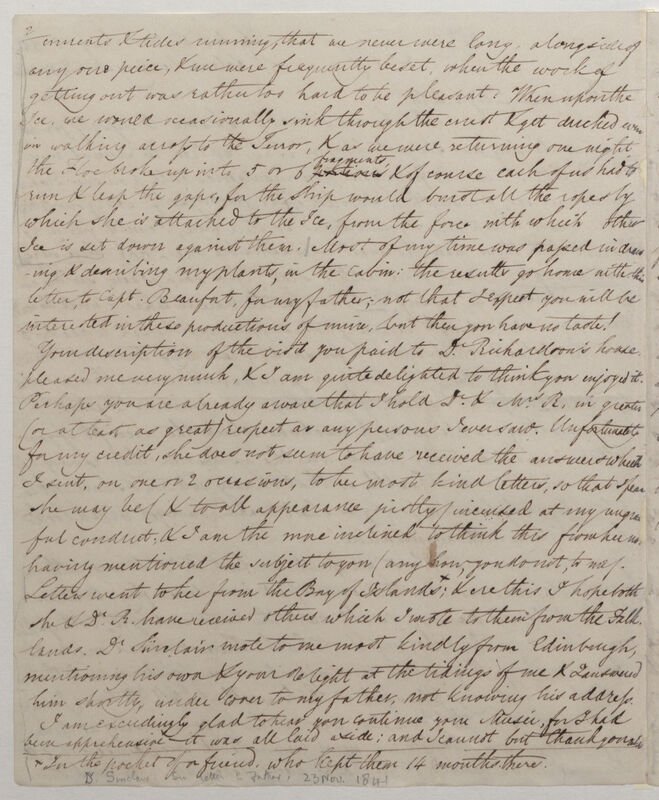 2
currents & tides running, that we never were long alongside of
any one peice, & we were frequently beset, when the work of
getting out was rather too hard to be pleasant. When upon the
Ice, we would occasionally sink through the crust & get ducked even
in walking across to the Terror, & as we were returning one night
the Floe broke up into 5 or 6 fragments & of course each of us had to
run & leap the gaps, for the Ship would burst all the ropes by
which she is attached to the Ice, from the force with which other
Ice is set down against them. Most of my time was passed in draw
-ing & describing my plants, in the cabin: the results go home with this
letter, to Capt. Beaufort, for my father; not that I expect you will be
interested in these productions of mine, but then you have no taste!
Your description of the visit you paid to Dr. Richardson's house
pleased me very much, & I am quite delighted to think you enjoyed it.
Perhaps you are already aware that I hold Dr. & Mrs. R. in greater
(or at least as great) respect as any persons I ever saw. Unfortunately
for my credit, she does not seem to have received the answers which
I sent, on one or 2 occasions, to her most kind letters, so that I fear
she may be (& to all appearance justly) incensed at my ungrate
ful conduct; & I am the more inclined to think this from her not
having mentioned the subject to you (any how, you do not, to me).
Letters went to her from the Bay of Islands+; & ere this I hope both
she & Dr. R. have received others which I wrote to them from the Falk
lands. Dr. Sinclair wrote to me most kindly from Edinburgh,
mentioning his own & your delight at the tidings of me & I answered
him shortly, under cover to my father, not knowing his address.
I am exceedingly glad to hear you continue your Music, for I had
been apprehensive it was all laid aside; and I cannot but thank you
+ In the pocket of a friend, who kept them 14 months there.
D. Sinclair see letter to Father, 23 Nov. 1841